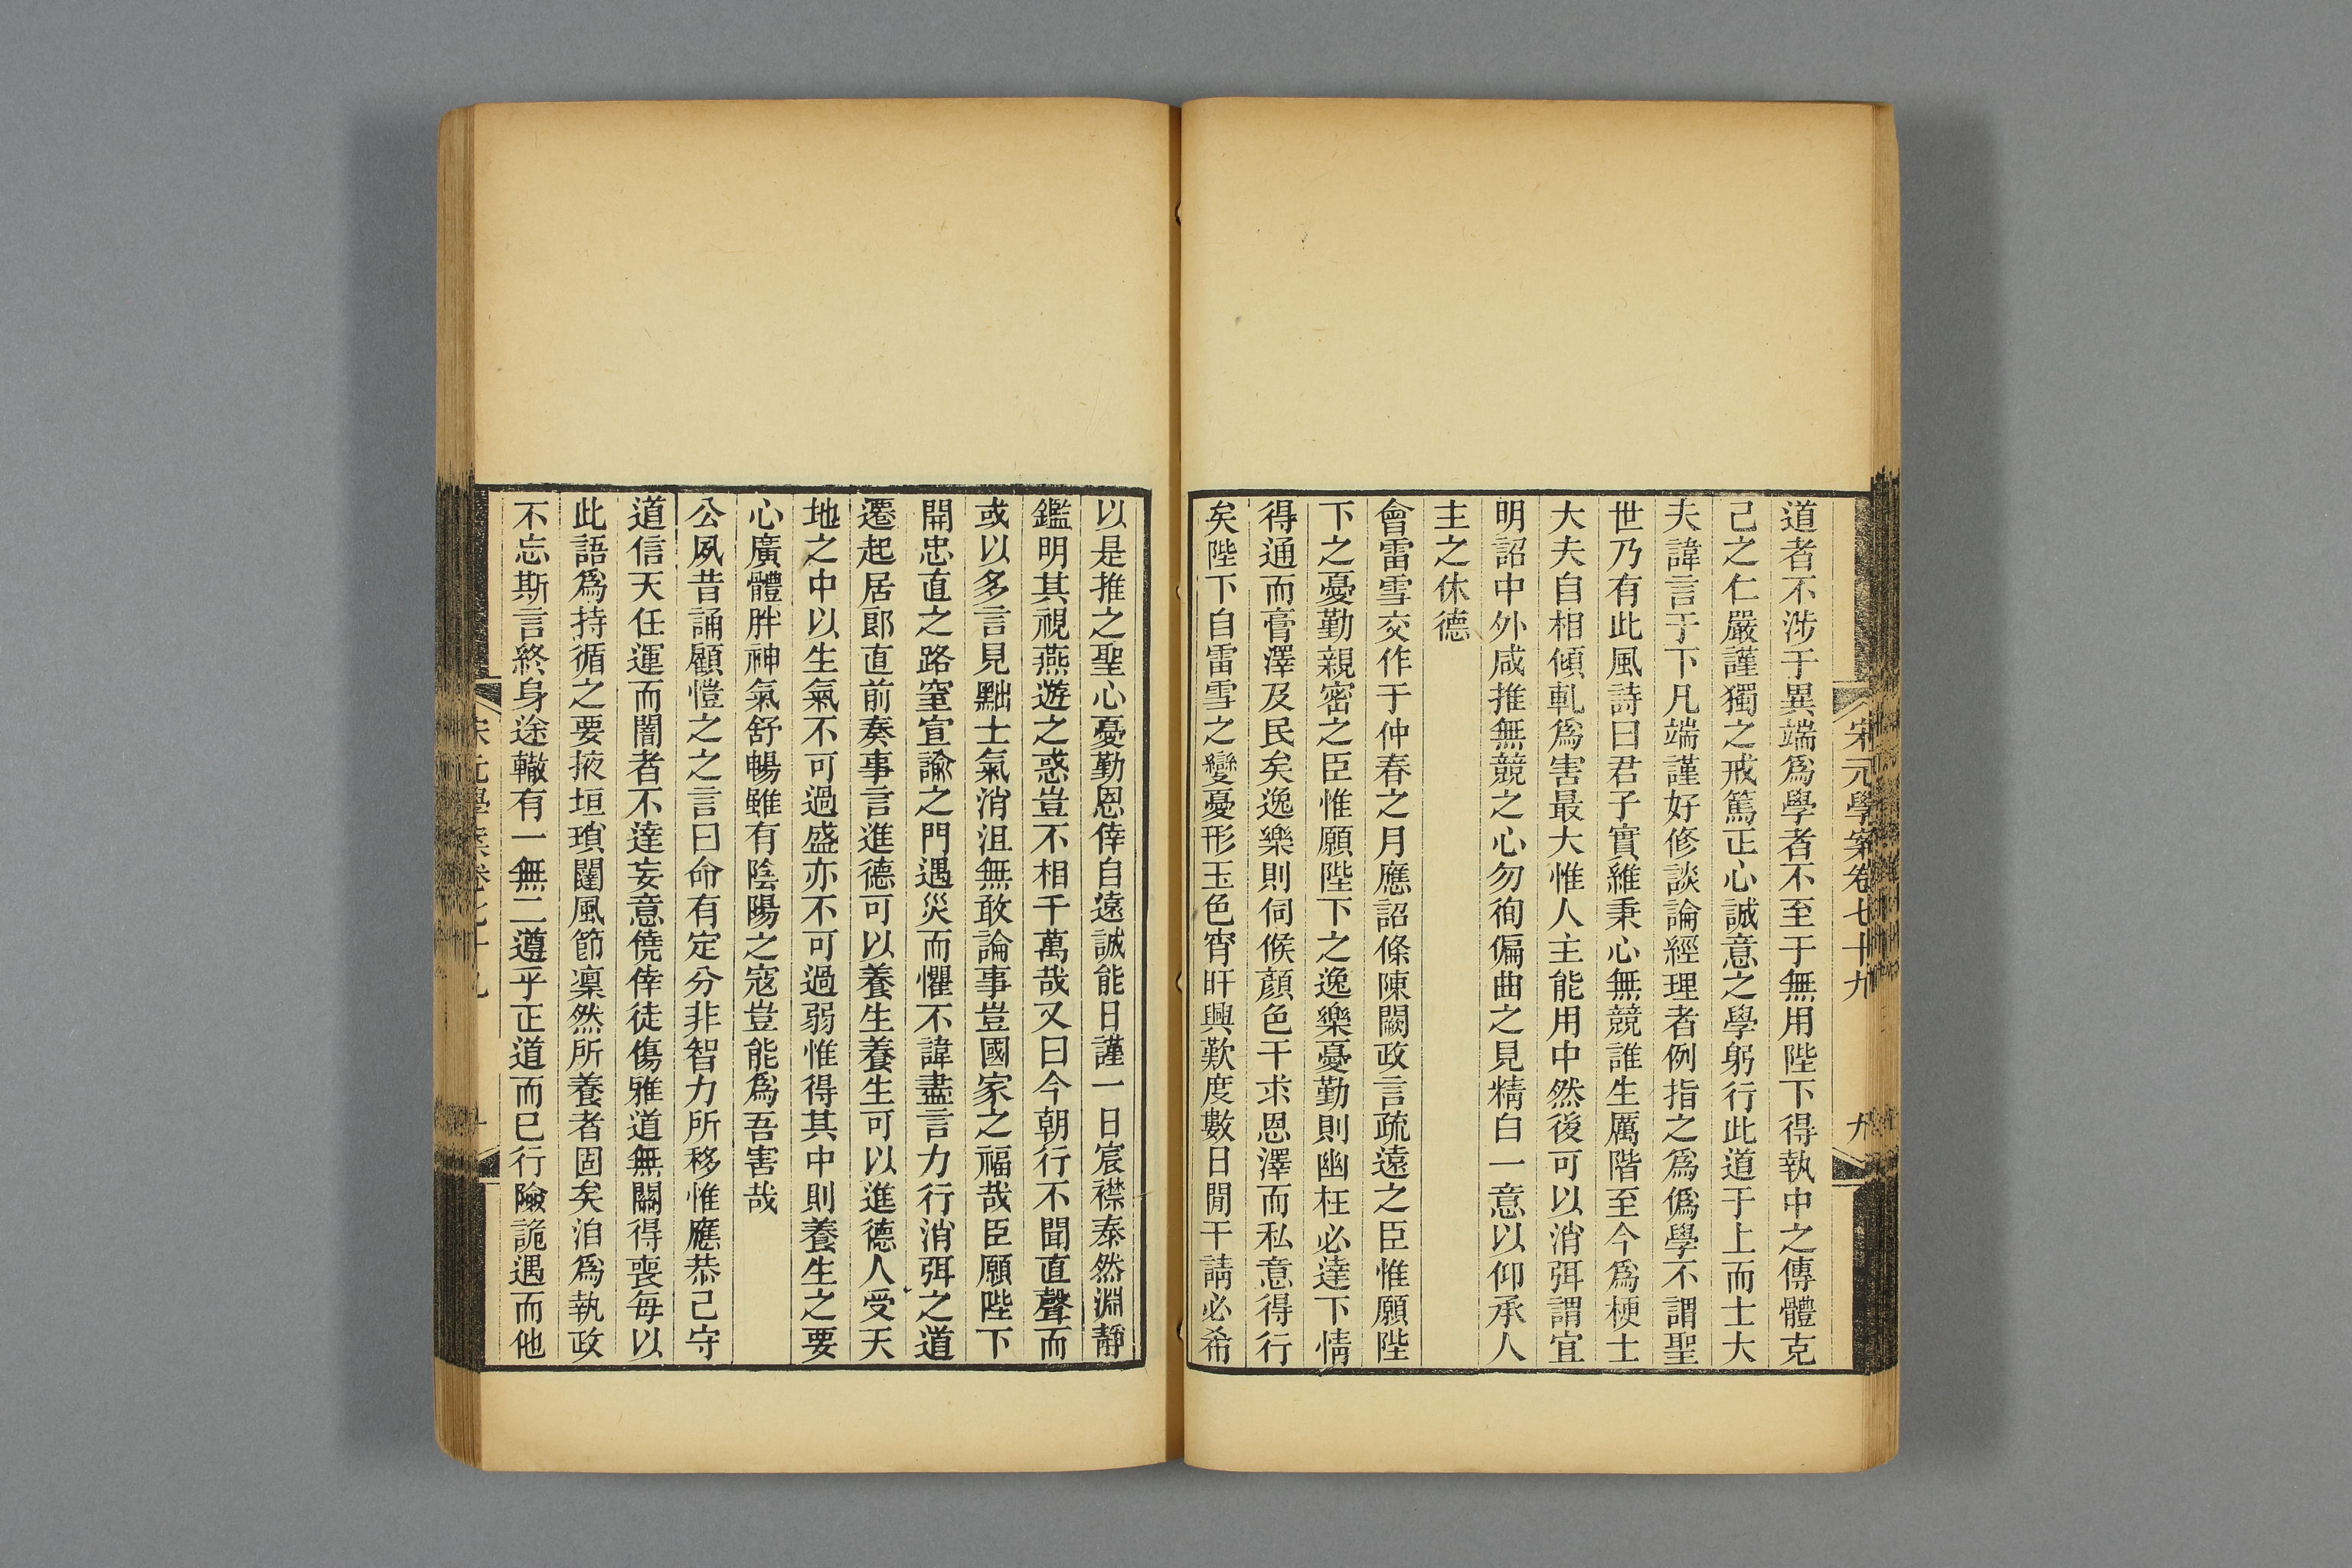 宋元學案卷七十九
九
道者不涉于異端爲學者不至于無用陛下得執中之傳體克
己之仁嚴謹獨之戒篤正心誠意之學躬行此道于上而士大
夫諱言于下凡端謹好修談論經理者例指之爲僞學不謂聖
世乃有此風詩曰君子實維秉心無競誰生厲階至今爲梗士
大夫自相傾軋爲害最大惟人主能用中然後可以消弭謂宜
明詔中外咸推無競之心勿徇偏曲之見精白一意以仰承人
主之休德
會雷雪交作于仲春之月應詔條陳闕政言疏遠之臣惟願陛
下之憂勤親密之臣惟願陛下之逸樂憂勤則幽枉必達下情
得通而膏澤及民矣逸樂則伺候顏色干求恩澤而私意得行
矣陛下自雷雪之變憂形玉色宵旰興歎度數日閒干請必希
以是推之聖心憂勤恩倖自遠誠能日謹一日宸襟泰然淵靜
鑑明其視燕遊之惑豈不相千萬哉又曰今朝行不聞直聲而
或以多言見黜士氣消沮無敢論事豈國家之福哉臣願陛下
開忠直之路窒宣諭之門遇災而懼不諱盡言力行消弭之道
遷起居郎直前奏事言進德可以養生養生可以進德人受天
地之中以生氣不可過盛亦不可過弱惟得其中則養生之要
心廣體胖神氣舒暢雖有陰陽之寇豈能爲吾害哉
公夙昔誦顧愷之之言曰命有定分非智力所移惟應恭己守
道信天任運而闇者不達妄意僥倖徒傷雅道無關得喪每以
此語爲持循之要掖垣瑣闥風節凜然所養者固矣洎爲執政
不忘斯言終身途轍有一無二遵乎正道而已行險詭遇而他
宋元學案卷七十九